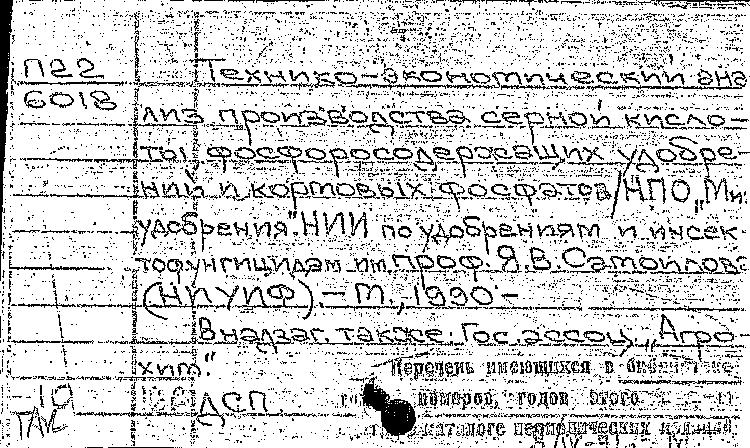 П22 Технико-экономический ана
6018
лиз производства серной кисло-
ты, фосфоросодержащих удобре-
ний и кормовых фосфатов/НПО „Мин
удобрения". НИИ по удобрениям и инсек-
тофунгицидам им. проф. Я.В. Самойлова
(НИУИФ). – М., 1990 –
В надзаг. также: Гос. ассоц. „Агро-
хим."
Перечень имеющихся в
-10 ДСП. номеров, годов этого
каталоге периодических